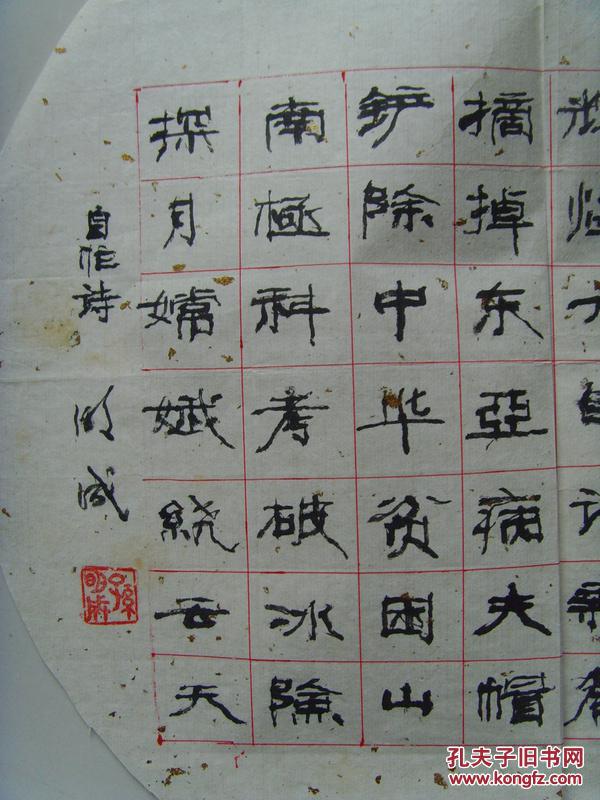 摘掉东亞病夫帽
铲除中华贫困山
南極科考破冰险
探月嫦娥绕云天
自作诗
明成
孔夫子旧书网
www.kongfz.com